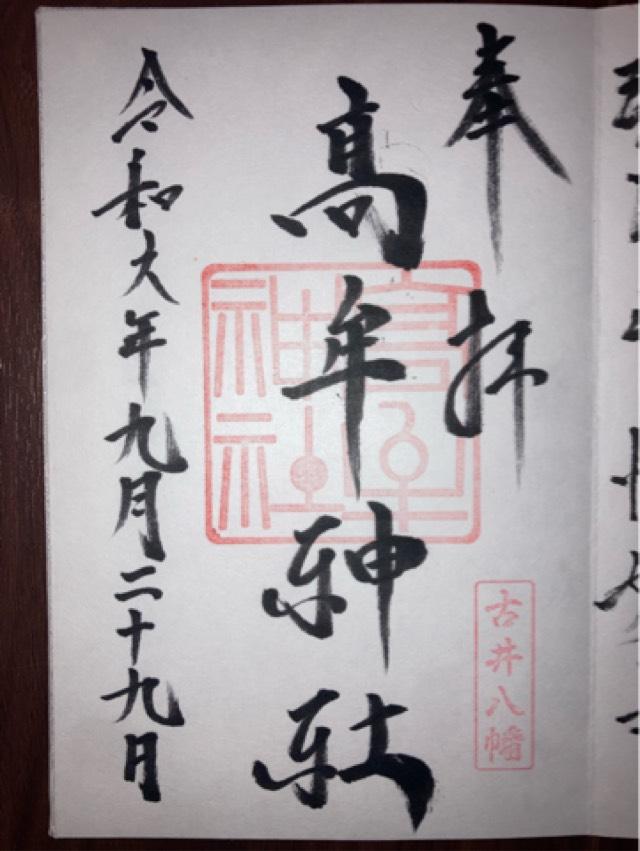 奉拝
古井八幡
髙牟神社
髙牟神社
令和六年九月二十九日